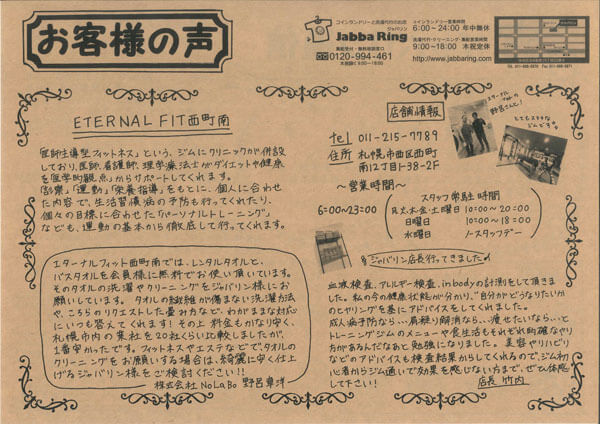 お客様の声
コインランドリーと洗濯代行のお店
ジャバリン
Jabba Ring
集配受付・無料相談窓口
0120-994-461
木祝除く9:00~18:00
コインランドリー営業時間
6:00~24:00 年中無休
洗濯代行・クリーニング・集配営業時間
9:00~18:00 木祝定休
http://www.jabbaring.com
ETERNAL FIT西町南
「医師主導型フィットネス」という、ジムにクリニックが併設
しており、医師、看護師、理学療法士がダイエットや健康
を「医学的観点」からサポートしてくれます。
「診療」「運動」「栄養指導」をもとに、個人に合わせ
た内容で、生活習慣病の予防も行ってくれたり、
個々の目標に合わせた「パーソナルトレーニング」
なども、運動の基本から徹底して行ってくれます。
エターナルフィット西町南では、レンタルタオルと、
バスタオルを会員様に無料でお使い頂いています。
そのタオルの洗濯やクリーニングをジャバリン様にお
願いしています。タオルの繊維が傷まない洗濯方法
や、こちらのリクエストした畳み方など、わがままな対応
にいつも答えてくれます!その上料金もかなり安く、
札幌市内の業社を20社くらい比較しましたが、
1番安かったです。フィットネスやエステなどで、タオルの
クリーニングをお願いする場合は、綺麗に安く仕上
げるジャバリン様をご検討ください!!
株式会社 NoLaBo 野呂卓洋
店舗情報
エターナルフィットの
野呂さんと!
とてもステキな
ジムです。
tel 011-215-7789
住所 札幌市西区西町
南12丁目1-38-2F
~営業時間~
6:00~23:00
スタッフ常駐時間
月.火.木.金.土曜日 10:00~20:00
日曜日 10:00~18:00
水曜日 ノースタッフデー
ジャバリン店長行ってきました
血液検査、アレルギー検査、inbodyの計測をして頂きま
した。私の今の健康状態が分かり、"自分がどうなりたいか"
のヒヤリングを基にアドバイスをしてくれました。
成人病予防なら…、肩凝り解消なら…、痩せたいなら…と
トレーニングジムのメニューや食生活もそれぞれ的確なやり
方があるんだなあと勉強になりました。美容やリハビリ
などのアドバイスも検査結果からしてくれるので、ジム初
心者からジム通いで効果を感じない方まで、ぜひ体感
して下さい!
店長 竹内